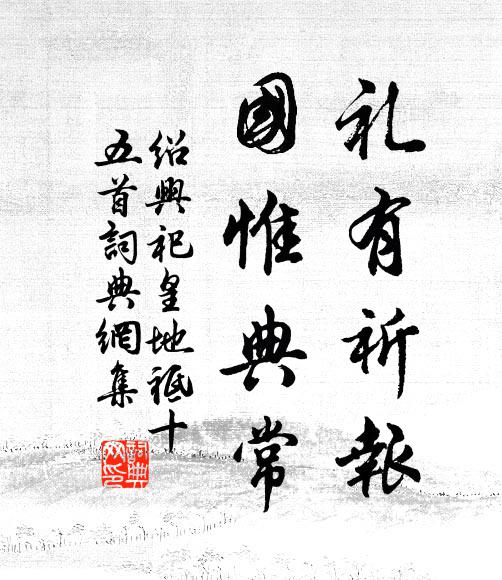 礼有祈報
國惟典常
紹興祀皇地祗十
五首詞典網集